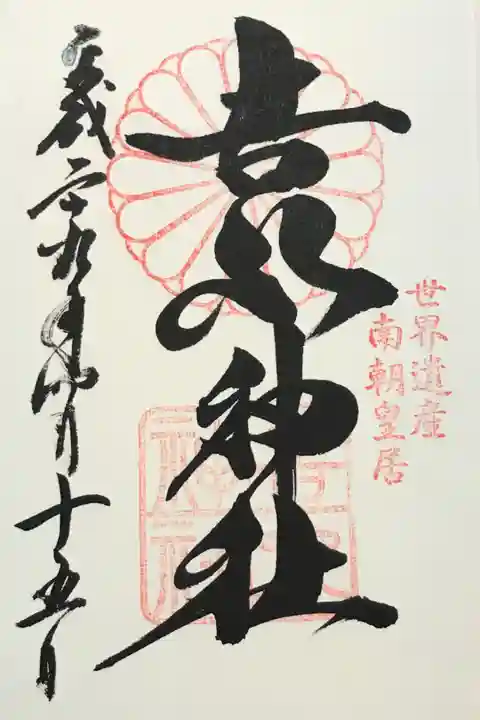 世界遺産
南朝皇居
吉水神社
平成二十九年四月十五日